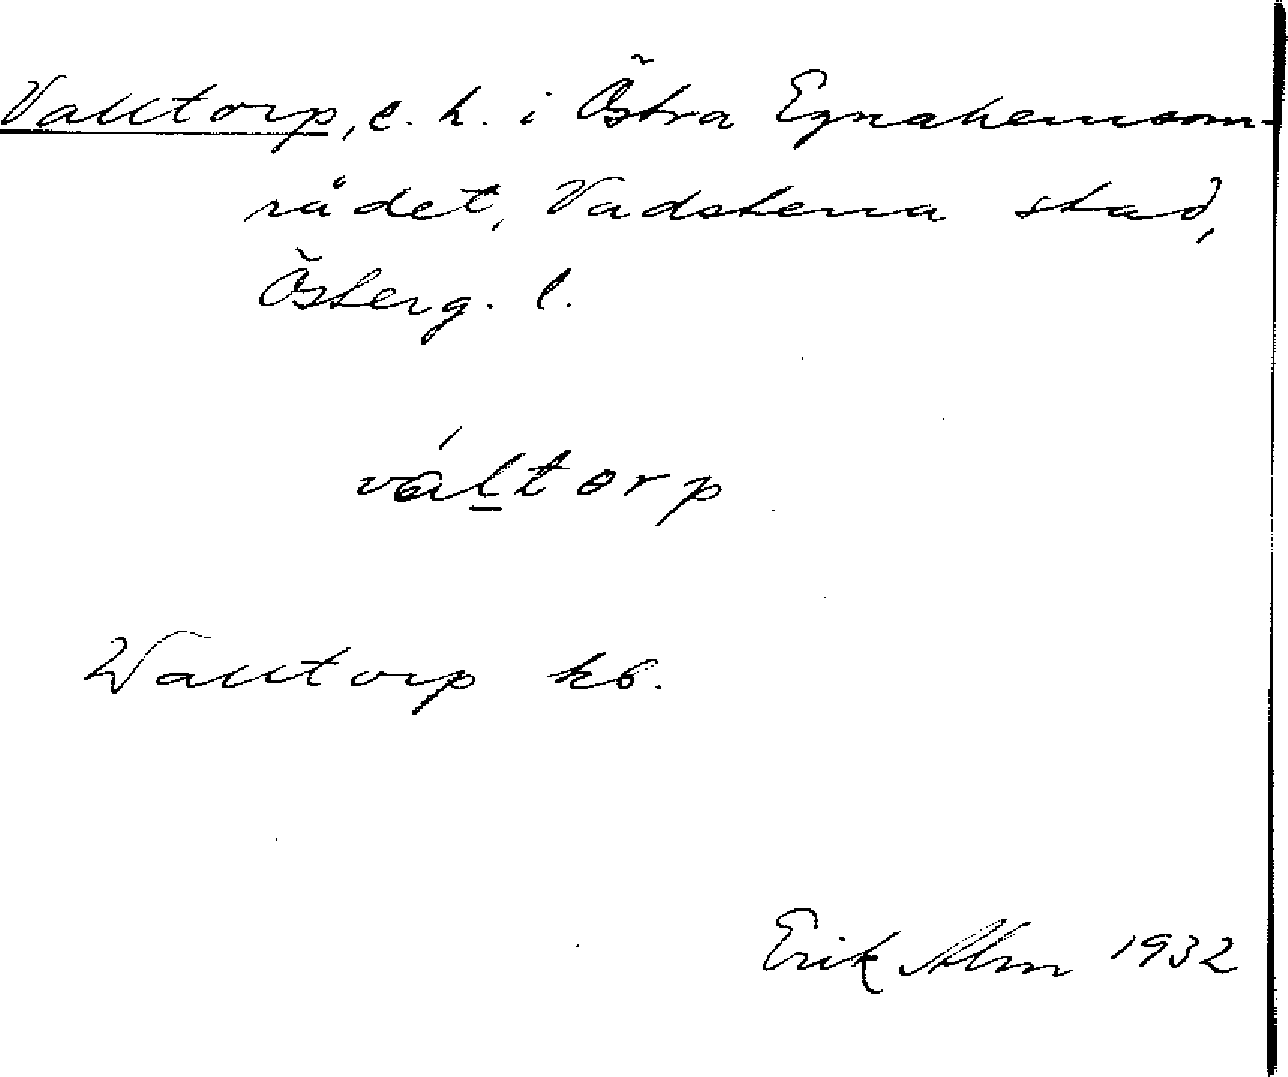 Valltorp, e. h. i Östra Egnahemsom-
rådet, Vadstena stad,
Österg. l.
váltorp
Walltorp kb.
Erik Alm 1932